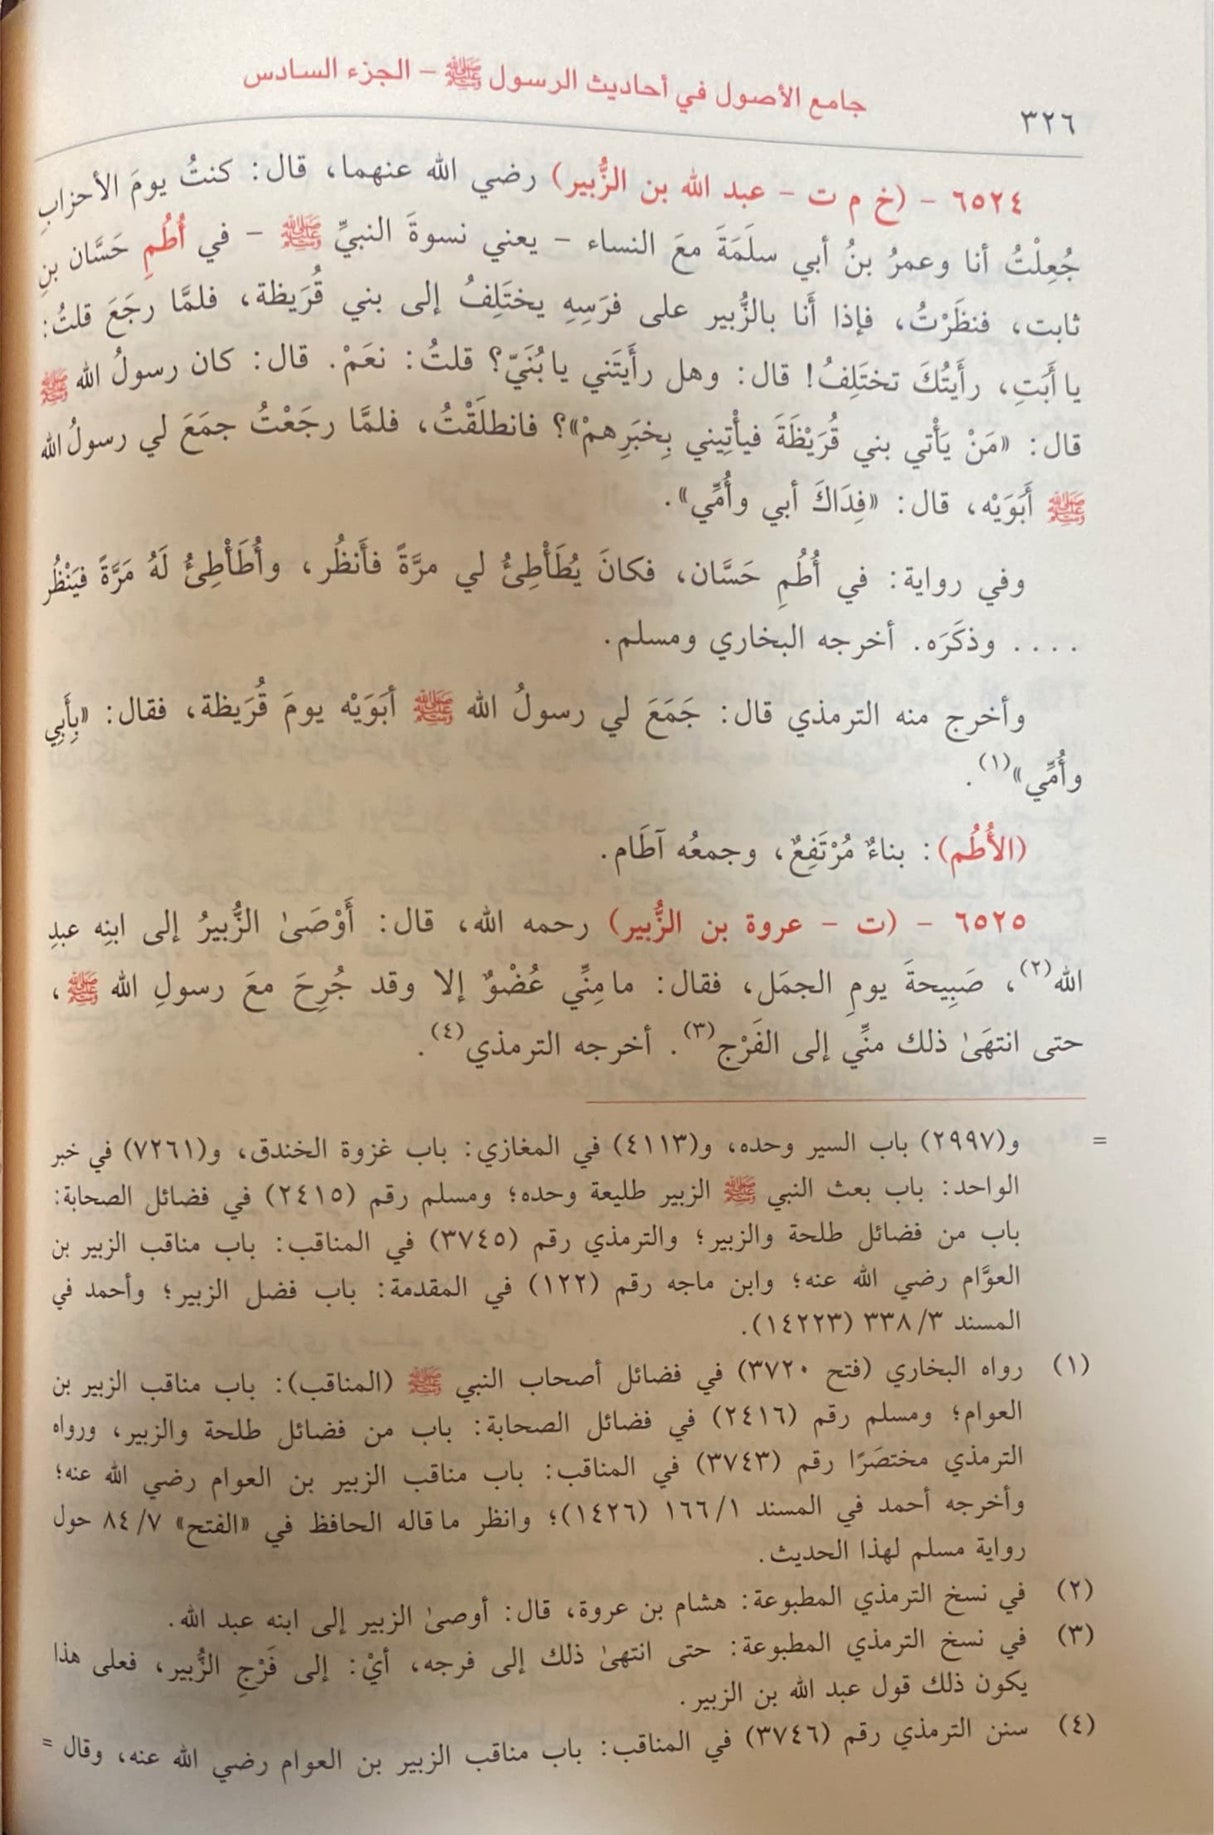 جامع الأصول في أحاديث الرسول ﷺ – الجزء السادس
٣٢٦
٦٥٢٤ - (خ م ت - عبد الله بن الزُّبير) رضي الله عنهما، قال: كنتُ يومَ الأحزابِ
جُعِلْتُ أنا وعمرُ بنُ أبي سلَمَةَ معَ النساء - يعني نسوةَ النبيِّ ﷺ - في أُطُمِ حَسَّان بنِ
ثابت، فنظَرْتُ، فإذا أَنا بالزُّبير على فرَسِهِ يختَلِفُ إلى بني قُرَيظة، فلمَّا رجَعَ قلتُ:
يا أبَتِ، رأَيتُكَ تختَلِفُ! قال: وهل رأَيتَني يا بُنَيّ؟ قلتُ: نعَمْ. قال: كان رسولُ الله ﷺ
قال: «مَنْ يَأْتي بني قُرَيْظَةَ فيأْتِيني بِخبَرِهمْ»؟ فانطلَقْتُ، فلمَّا رجَعْتُ جمَعَ لي رسولُ الله
ﷺ أَبَوَيْه، قال: «فِدَاكَ أبي وأُمِّي».
وفي رواية: في أُطُمِ حَسَّان، فكانَ يُطَأْطِئُ لي مرَّةً فأَنظُر، وأُطَأْطِئُ لَهُ مَرَّةً فيَنْظُر
.... وذكَرَه. أخرجه البخاري ومسلم.
وأخرج منه الترمذي قال: جَمَعَ لي رسولُ الله ﷺ أبَوَيْه يومَ قُرَيظة، فقال: «بِأَبِي
وأُمِّي»(١).
(الأُطُم): بناءٌ مُرْتَفِعٌ، وجمعُه آطَام.
٦٥٢٥ - (ت - عروة بن الزُّبير) رحمه الله، قال: أَوْصَىٰ الزُّبيرُ إلى ابنِه عبدِ
الله(٢)، صَبِيحةَ يومِ الجمَل، فقال: ما مِنِّي عُضْوٌ إلا وقد جُرِحَ معَ رسولِ الله ﷺ،
حتى انتهَىٰ ذلك منِّي إلى الفَرْج(٣). أخرجه الترمذي(٤).
= و(٢٩٩٧) باب السير وحده، و(٤١١٣) في المغازي: باب غزوة الخندق، و(٧٢٦١) في خبر
الواحد: باب بعث النبي ﷺ الزبير طليعة وحده؛ ومسلم رقم (٢٤١٥) في فضائل الصحابة:
باب من فضائل طلحة والزبير؛ والترمذي رقم (٣٧٤٥) في المناقب: باب مناقب الزبير بن
العوَّام رضي الله عنه؛ وابن ماجه رقم (١٢٢) في المقدمة: باب فضل الزبير؛ وأحمد في
المسند ٣/ ٣٣٨ (١٤٢٢٣).
(١) رواه البخاري (فتح ٣٧٢٠) في فضائل أصحاب النبي ﷺ (المناقب): باب مناقب الزبير بن
العوام؛ ومسلم رقم (٢٤١٦) في فضائل الصحابة: باب من فضائل طلحة والزبير، ورواه
الترمذي مختصَرًا رقم (٣٧٤٣) في المناقب: باب مناقب الزبير بن العوام رضي الله عنه؛
وأخرجه أحمد في المسند ١/ ١٦٦ (١٤٢٦)؛ وانظر ما قاله الحافظ في «الفتح» ٧/ ٨٤ حول
رواية مسلم لهذا الحديث.
(٢) في نسخ الترمذي المطبوعة: هشام بن عروة، قال: أوصىٰ الزبير إلى ابنه عبد الله.
(٣) في نسخ الترمذي المطبوعة: حتى انتهىٰ ذلك إلى فرجه، أيْ: إلى فَرْجِ الزُّبير، فعلى هذا
يكون ذلك قول عبد الله بن الزبير.
(٤) سنن الترمذي رقم (٣٧٤٦) في المناقب: باب مناقب الزبير بن العوام رضي الله عنه، وقال =